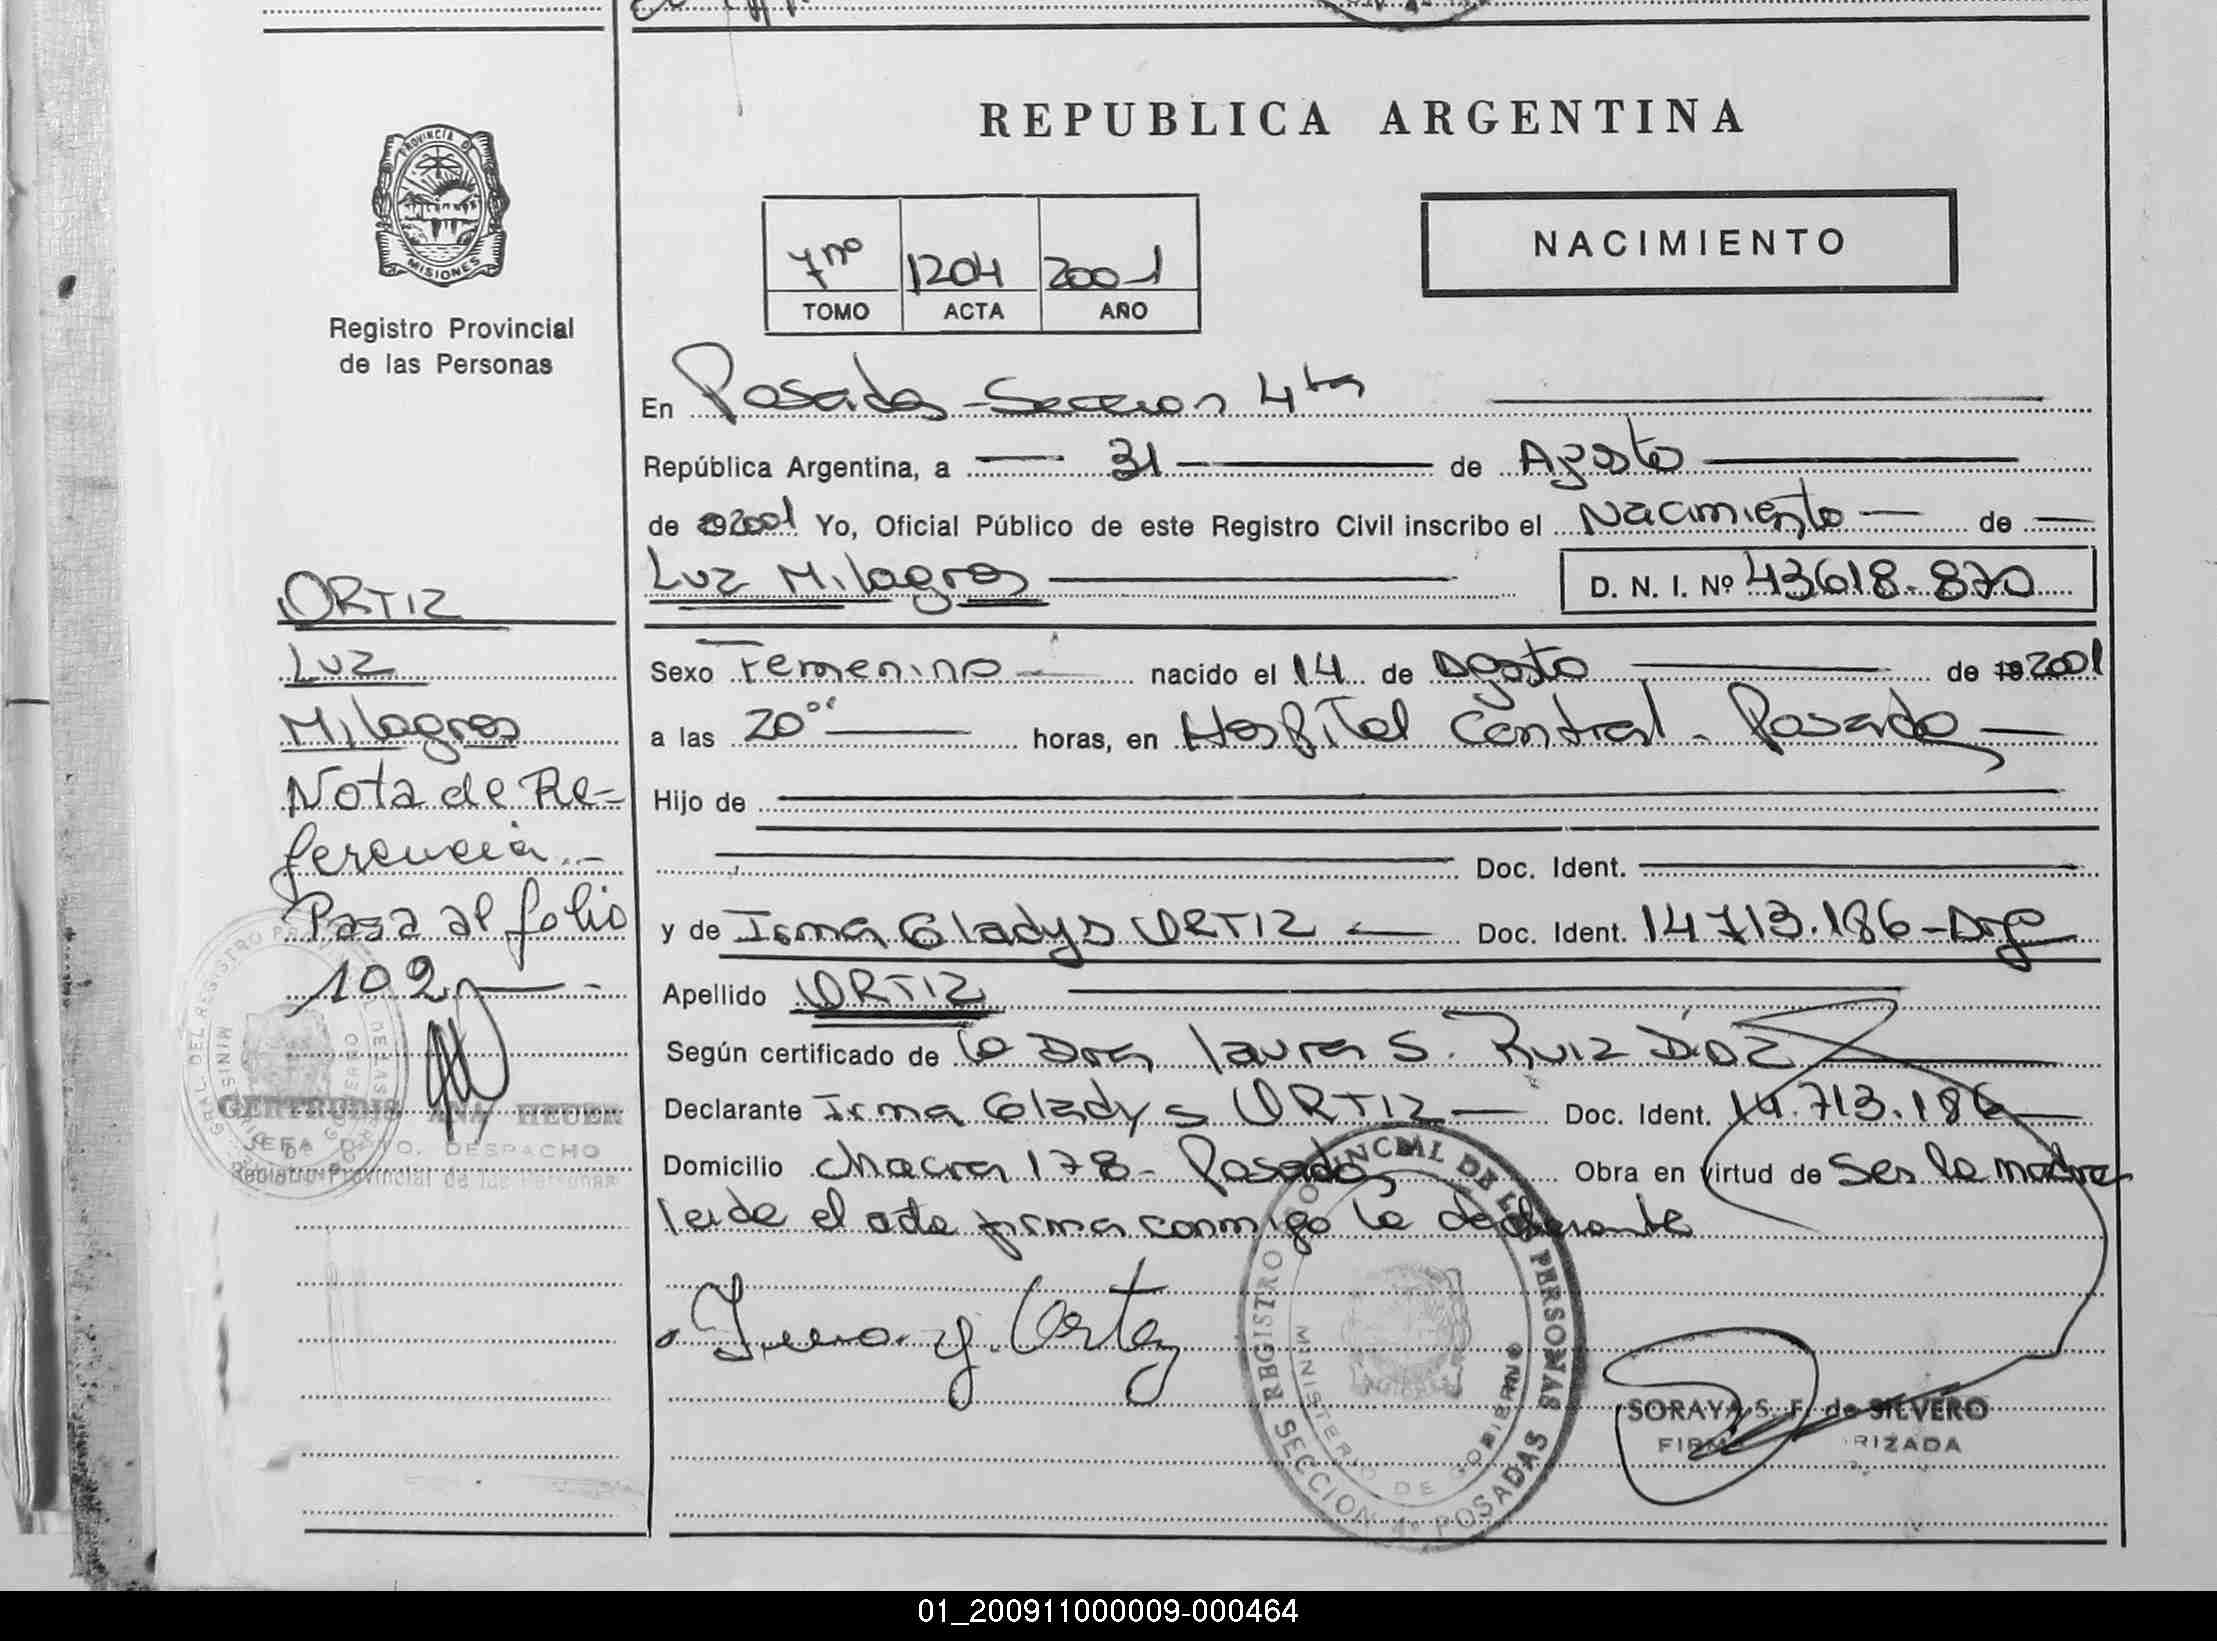 REPUBLICA ARGENTINA
PROVINCIA D
MISIONES
Registro Provincial
de las Personas
7mo 1204 2001
TOMO ACTA AÑO
NACIMIENTO
En Posadas - Seccion 4ta
República Argentina, a 31 de Agosto
de 2001 Yo, Oficial Público de este Registro Civil inscribo el Nacimiento de
Luz Milagros D. N. I. Nº 43618.870
Sexo Femenino nacido el 14 de Agosto de 19 2001
a las 20 horas, en Hospital Central - Posadas
Hijo de
Doc. Ident.
y de Irma Gladys ORTIZ Doc. Ident. 14713.186 - Arg
Apellido ORTIZ
Según certificado de la Dra laura S. RUIZ DIAZ
Declarante Irma Gladys ORTIZ Doc. Ident. 14.713.186
Domicilio chacra 178 - Posadas Obra en virtud de Ser la madre
leida el acta firma conmigo la declarante
ORTIZ
Luz
Milagros
Nota de Re-
ferencia
Pasa al folio
102
GERTRUDIS ANA HEUER
JEFA DTO. DESPACHO
Registro Provincial de las Personas
Irma G. Ortiz
REGISTRO PROVINCIAL DE LAS PERSONAS
MINISTERIO DE GOBIERNO
SECCION 4º POSADAS
SORAYA S. F. de SILVERO
FIRMA RIZADA
01_200911000009-000464